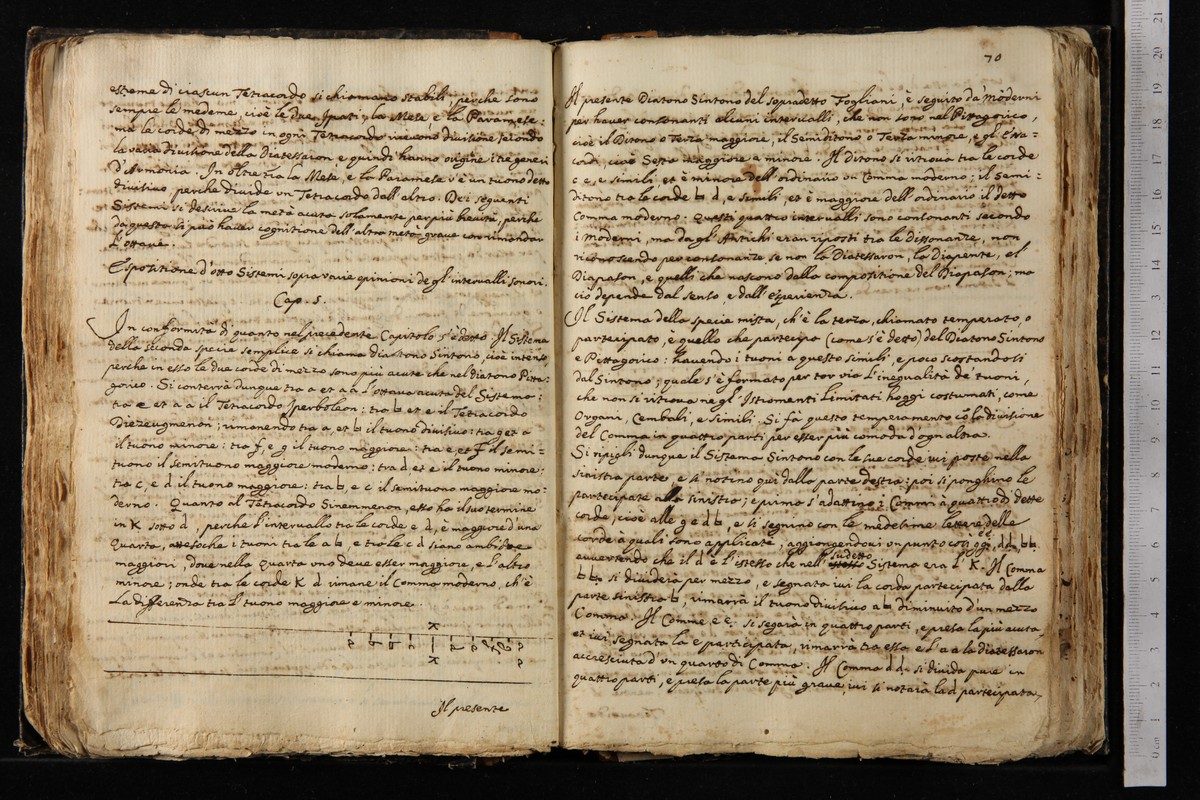 estreme di ciascun Tetracordo si chiamano stabili, perche sono
sempre le medeme, cioè le due Ipati, la Mese e la Paramese:
ma le corde di mezzo in ogni Tetracordo ricevono divisione secondo
la varia divisione della Diatessaron e quindi hanno origine i tre generi
d'Armonia. In oltre tra la Mese, e la Paramese v'è un tuono detto
divisivo, perche divide un Tetracordo dall'altro. Dei seguenti
Sistemi si descrive la metà acuta solamente per più brevità, perche
da questa si può haver cognitione dell'altra metà grave con rimandar
l'ottave.
Espositione d'otto Sistemi sopra varie opinioni de gl'intervalli sonori.
Cap. 5.
In conformità di quanto nel precedente Capitolo s'è detto Il Sistema
della seconda specie semplice si chiama diatono Sintono, cioè intenso
perche in esso le due corde di mezzo sono più acute che nel diatono Pitta-
gorico. Si conterrà dunque tra a et aa l'ottava acuta del Sistema:
tra e et aa il Tetracordo Iperboleon: tra ♮ et e il Tetracordo
Diezeugmenon; rimanendo tra a et ♮ il tuono divisivo: tra g et a
il tuono minore: tra f, e g il tuono maggiore: tra e, et f il semi-
tuono il semituono maggiore moderno: tra d, et e il tuono minore:
tra c, e d il tuono maggiore: tra ♮, e c il semituono maggiore mo-
derno. Quanto al Tetracordo Sinemmenon, esso hà il suo termine
in K sotto d, perche l'intervallo tra le corde e d, è maggiore d'una
Quarta, attesoche i tuoni tra le a ♮, e tra le c d siano ambidue
maggiori, dove nella Quarta uno deve esser maggiore, e l'altro
minore; onde tra le corde K d rimane il Comma moderno, ch'è
la differenza tra l'tuono maggiore e minore.
Il presente
70
Il presente Diatono Sintono del sopradetto Fogliani è seguito da' Moderni
per haver consonanti alcuni intervalli, che non sono nel Pittagorico,
cioè il Ditono o Terza maggiore, il Semiditono o Terza minore, e gl'Essa-
cordi, cioè Sesta maggiore e minore. Il Ditono si ritrova tra le corde
c e, e simili, et è minore dell'ordinario un Comma moderno: il Semi-
ditono tra le corde ♮ d, e simili, et è maggiore dell'ordinario il detto
Comma moderno: Questi quattro intervalli sono consonanti secondo
i Moderni, ma dagl'Antichi eran riposti tra le Dissonanze, non
riconoscendo per consonanze se non la Diatessaron, la Diapente, el
Diapason, e quelli che nascono dalla compositione del Diapason; ma
ciò depende dal senso, e dall'esperienza.
Il Sistema della specie mista, ch'è la terza, chiamato temperato, o
partecipato, è quello che partecipa (come s'è detto) del Diatono Sintono
e Pittagorico: havendo i tuoni a questo simili, e poco scostandosi
dal Sintono; quale s'è formato per tor via l'inegualità de' tuoni,
che non si ritrova negl'Istromenti limitati hoggi costumati, come
Organi, Cembali, e simili. Si fà questo temperamento cō la divisione
del Comma in quattro parti per esser più comoda d'ogn'altra.
Si ripigli dunque il Sistema Sintono con le sue corde ivi poste nella
sinistra parte, e si notino qui dalla parte destra: poi si ponghino le
partecipate alla sinistra; e prima s'adattino i Commi à quattro di dette
corde, cioè alle g e d ♮, e si segnino con le medesime lettere delle
corde à quali sono applicate, aggiongendovi un punto così gg, ee, dd, ♮♮.
avvertendo che il d è l'istesso che nell' sudetto Sistema era l'K. Il Comma
♮♮. si dividerà per mezzo, e segnata ivi la corda partecipata dalla
parte sinistra ♮, rimarrà il tuono divisivo a ♮ diminuito d'un mezzo
Comma. Il Comma e e. si segarà in quattro parti, e presa la più acuta,
et ivi segnata la e participata, rimarrà tra essa e l'aa la diatessaron
accresciuta d'un quarto di Comma. Il Comma d d. si divida pure in
quattro parti, e presa la parte più grave, ivi si notarà la d partecipata,